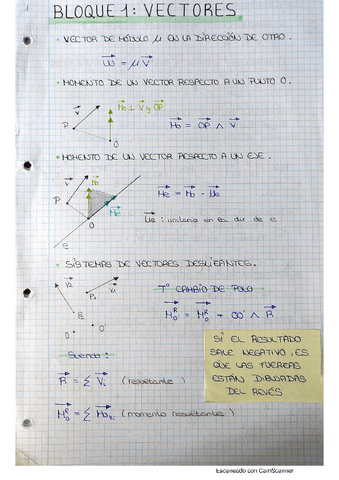 BLOQUE 1: VECTORES
• VECTOR DE MÓDULO μ EN LA DIRECCIÓN DE OTRO.
w = μ v
• MOMENTO DE UN VECTOR RESPECTO A UN PUNTO O.
v
Mo ⊥ V y OP
P
O
Mo = OP ∧ V
• MOMENTO DE UN VECTOR RESPECTO A UN EJE.
v
Mo
P
Me
O
e
Me = Mo · Ue
Ue : unitario en la dir de e
• SISTEMAS DE VECTORES DESLIZANTES.
V2
P1
V1
P2
O
O'
Tº CAMBIO DE POLO
Mo'ᴿ = Moᴿ + OO' ∧ R
Siendo:
R = Σ Vi (resultante)
Moᴿ = Σ Mo vi (momento resultante)
SI EL RESULTADO
SALE NEGATIVO, ES
QUE LAS FUERZAS
ESTÁN DIBUJADAS
DEL REVÉS
Escaneado con CamScanner